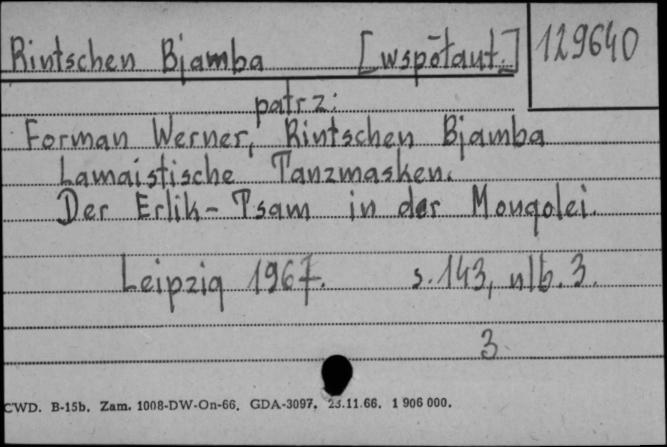 Rintschen Bjamba [współaut.] 129640
patrz:
Forman Werner, Rintschen Bjamba
Lamaistische Tanzmasken.
Der Erlik-Tsam in der Mongolei.
Leipzig 1967. s. 143, nlb. 3.
3
CWD. B-15b. Zam. 1008-DW-On-66. GDA-3097. 23.11.66. 1 906 000.